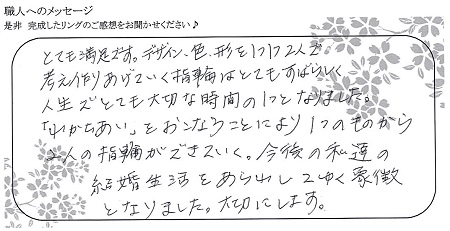 職人へのメッセージ
是非 完成したリングのご感想をお聞かせください♪
とても満足です。デザイン、色、形を1つ1つ2人で
考え作りあげていく指輪はとてもすばらしく
人生でとても大切な時間の1つとなりました。
「わかちあい」をおこなうことにより1つのものから
2人の指輪ができていく。今後の私達の
結婚生活をあらわしてゆく象徴
となりました。大切にします。